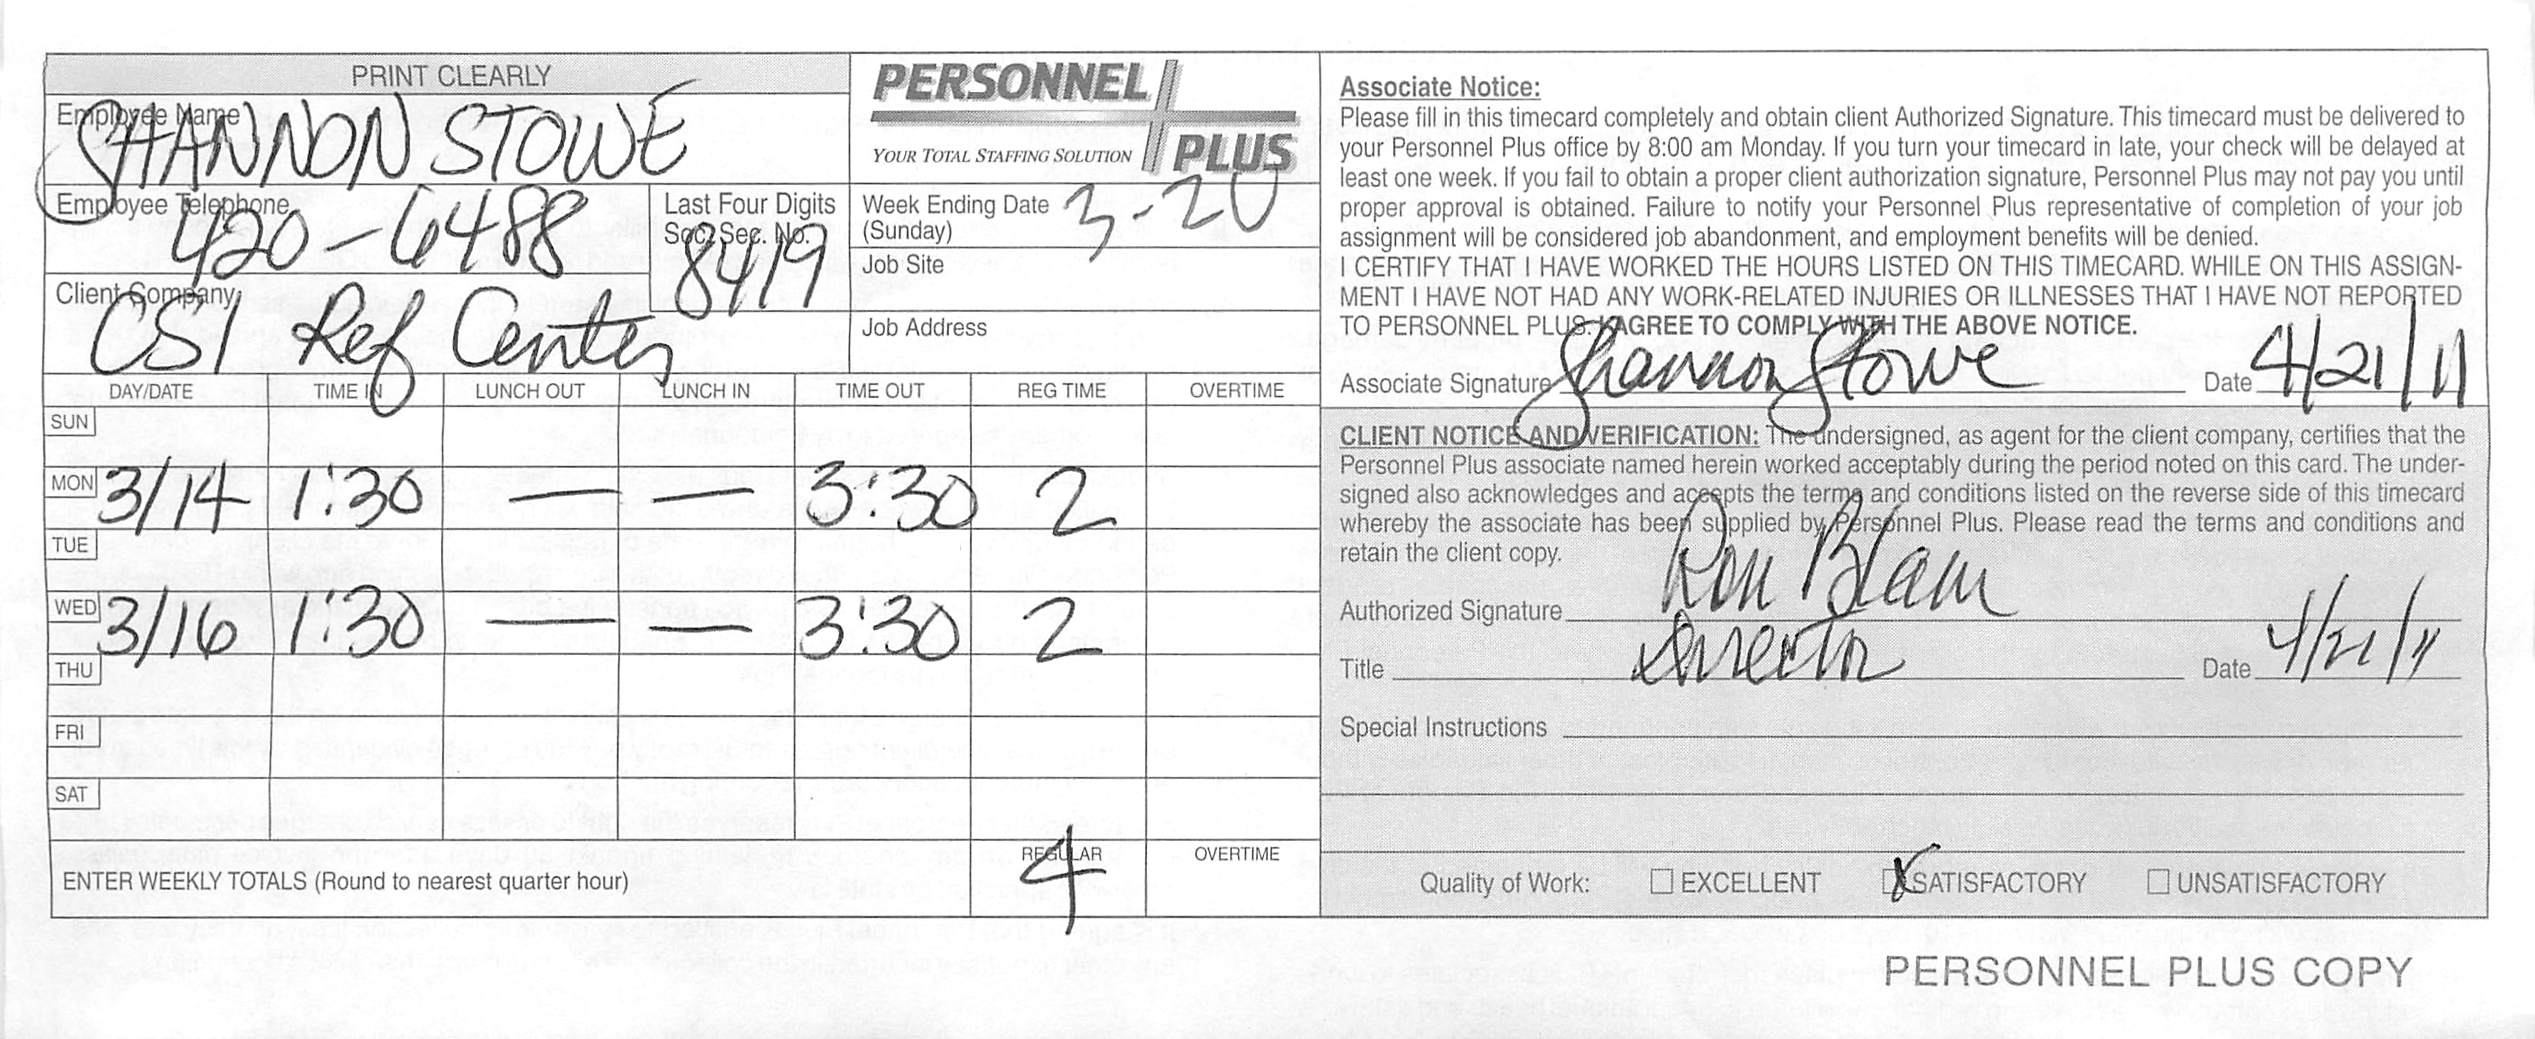 PRINT CLEARLY
Employee Name
SHANNON STOWE
Employee Telephone
420-6488
Last Four Digits
Soc. Sec. No.
8419
Client Company
CSI Ref Center
PERSONNEL
PLUS
YOUR TOTAL STAFFING SOLUTION
Week Ending Date
(Sunday)
3-20
Job Site
Job Address
DAY/DATE TIME IN LUNCH OUT LUNCH IN TIME OUT REG TIME OVERTIME
SUN
MON 3/14 1:30 — — 3:30 2
TUE
WED 3/16 1:30 — — 3:30 2
THU
FRI
SAT
ENTER WEEKLY TOTALS (Round to nearest quarter hour)
REGULAR
4
OVERTIME
Associate Notice:
Please fill in this timecard completely and obtain client Authorized Signature. This timecard must be delivered to
your Personnel Plus office by 8:00 am Monday. If you turn your timecard in late, your check will be delayed at
least one week. If you fail to obtain a proper client authorization signature, Personnel Plus may not pay you until
proper approval is obtained. Failure to notify your Personnel Plus representative of completion of your job
assignment will be considered job abandonment, and employment benefits will be denied.
I CERTIFY THAT I HAVE WORKED THE HOURS LISTED ON THIS TIMECARD. WHILE ON THIS ASSIGN-
MENT I HAVE NOT HAD ANY WORK-RELATED INJURIES OR ILLNESSES THAT I HAVE NOT REPORTED
TO PERSONNEL PLUS. I AGREE TO COMPLY WITH THE ABOVE NOTICE.
Associate Signature Shannon Stowe Date 4/21/11
CLIENT NOTICE AND VERIFICATION: The undersigned, as agent for the client company, certifies that the
Personnel Plus associate named herein worked acceptably during the period noted on this card. The under-
signed also acknowledges and accepts the terms and conditions listed on the reverse side of this timecard
whereby the associate has been supplied by Personnel Plus. Please read the terms and conditions and
retain the client copy.
Authorized Signature Ron Blam
Title Director Date 4/21/11
Special Instructions
Quality of Work: EXCELLENT X SATISFACTORY UNSATISFACTORY
PERSONNEL PLUS COPY